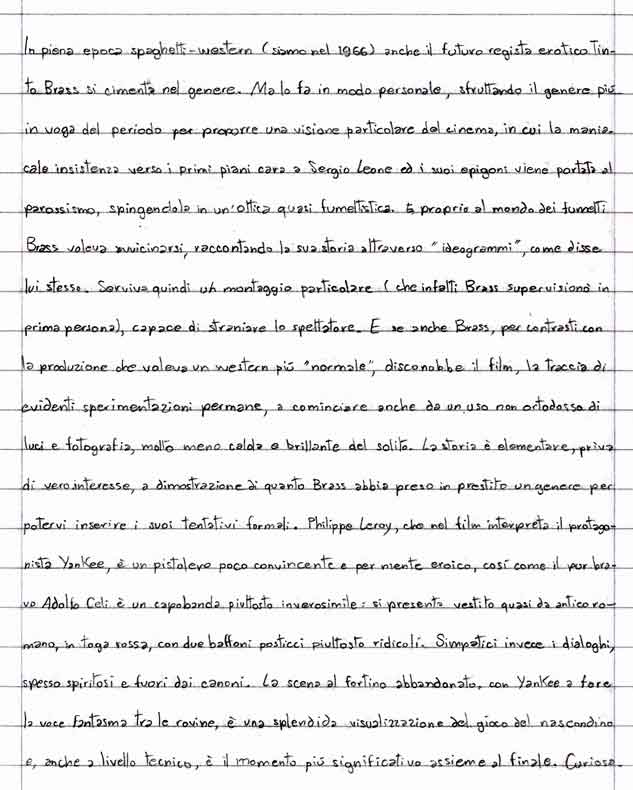 In piena epoca spaghetti-western (siamo nel 1966) anche il futuro regista erotico Tin-
to Brass si cimenta nel genere. Ma lo fa in modo personale, sfruttando il genere più
in voga del periodo per proporre una visione particolare del cinema, in cui la mania-
cale insistenza verso i primi piani cara a Sergio Leone ed i suoi epigoni viene portata al
parossismo, spingendola in un'ottica quasi fumettistica. E proprio al mondo dei fumetti
Brass voleva avvicinarsi, raccontando la sua storia attraverso "ideogrammi", come disse
lui stesso. Serviva quindi un montaggio particolare (che infatti Brass supervisionò in
prima persona), capace di straniare lo spettatore. E se anche Brass, per contrasti con
la produzione che voleva un western più "normale", disconobbe il film, la traccia di
evidenti sperimentazioni permane, a cominciare anche da un uso non ortodosso di
luci e fotografia, molto meno calda e brillante del solito. La storia è elementare, priva
di vero interesse, a dimostrazione di quanto Brass abbia preso in prestito un genere per
potervi inserire i suoi tentativi formali. Philippe Leroy, che nel film interpreta il protago-
nista Yankee, è un pistolero poco convincente e per niente eroico, così come il pur bra-
vo Adolfo Celi è un capobanda piuttosto inverosimile: si presenta vestito quasi da antico ro-
mano, in toga rossa, con due baffoni posticci piuttosto ridicoli. Simpatici invece i dialoghi,
spesso spiritosi e fuori dai canoni. La scena al fortino abbandonato, con Yankee a fare
la voce fantasma tra le rovine, è una splendida visualizzazione del gioco del nascondino
e, anche a livello tecnico, è il momento più significativo assieme al finale. Curiosa.